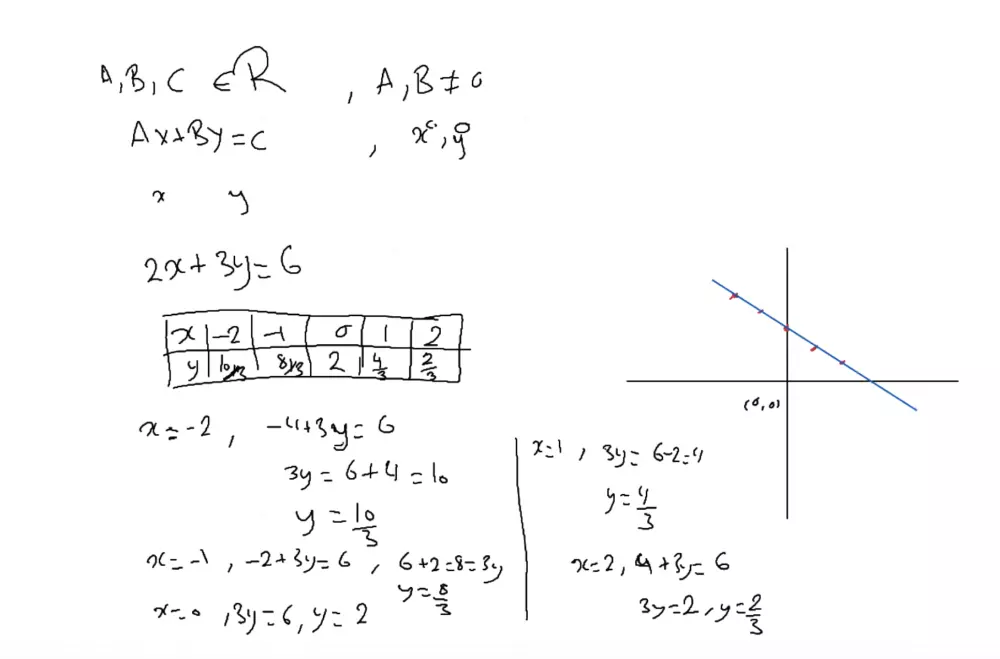 A, B, C ∈ R , A, B ≠ 0
Ax+By=C , x°, y°
x y
2x+3y=6
x -2 -1 0 1 2
y 10/3 8/3 2 4/3 2/3
(0,0)
x=-2, -4+3y=6
3y=6+4=10
y=10/3
x=-1, -2+3y=6, 6+2=8=3y
y=8/3
x=0, 3y=6, y=2
x=1, 3y=6-2=4
y=4/3
x=2, 4+3y=6
3y=2, y=2/3